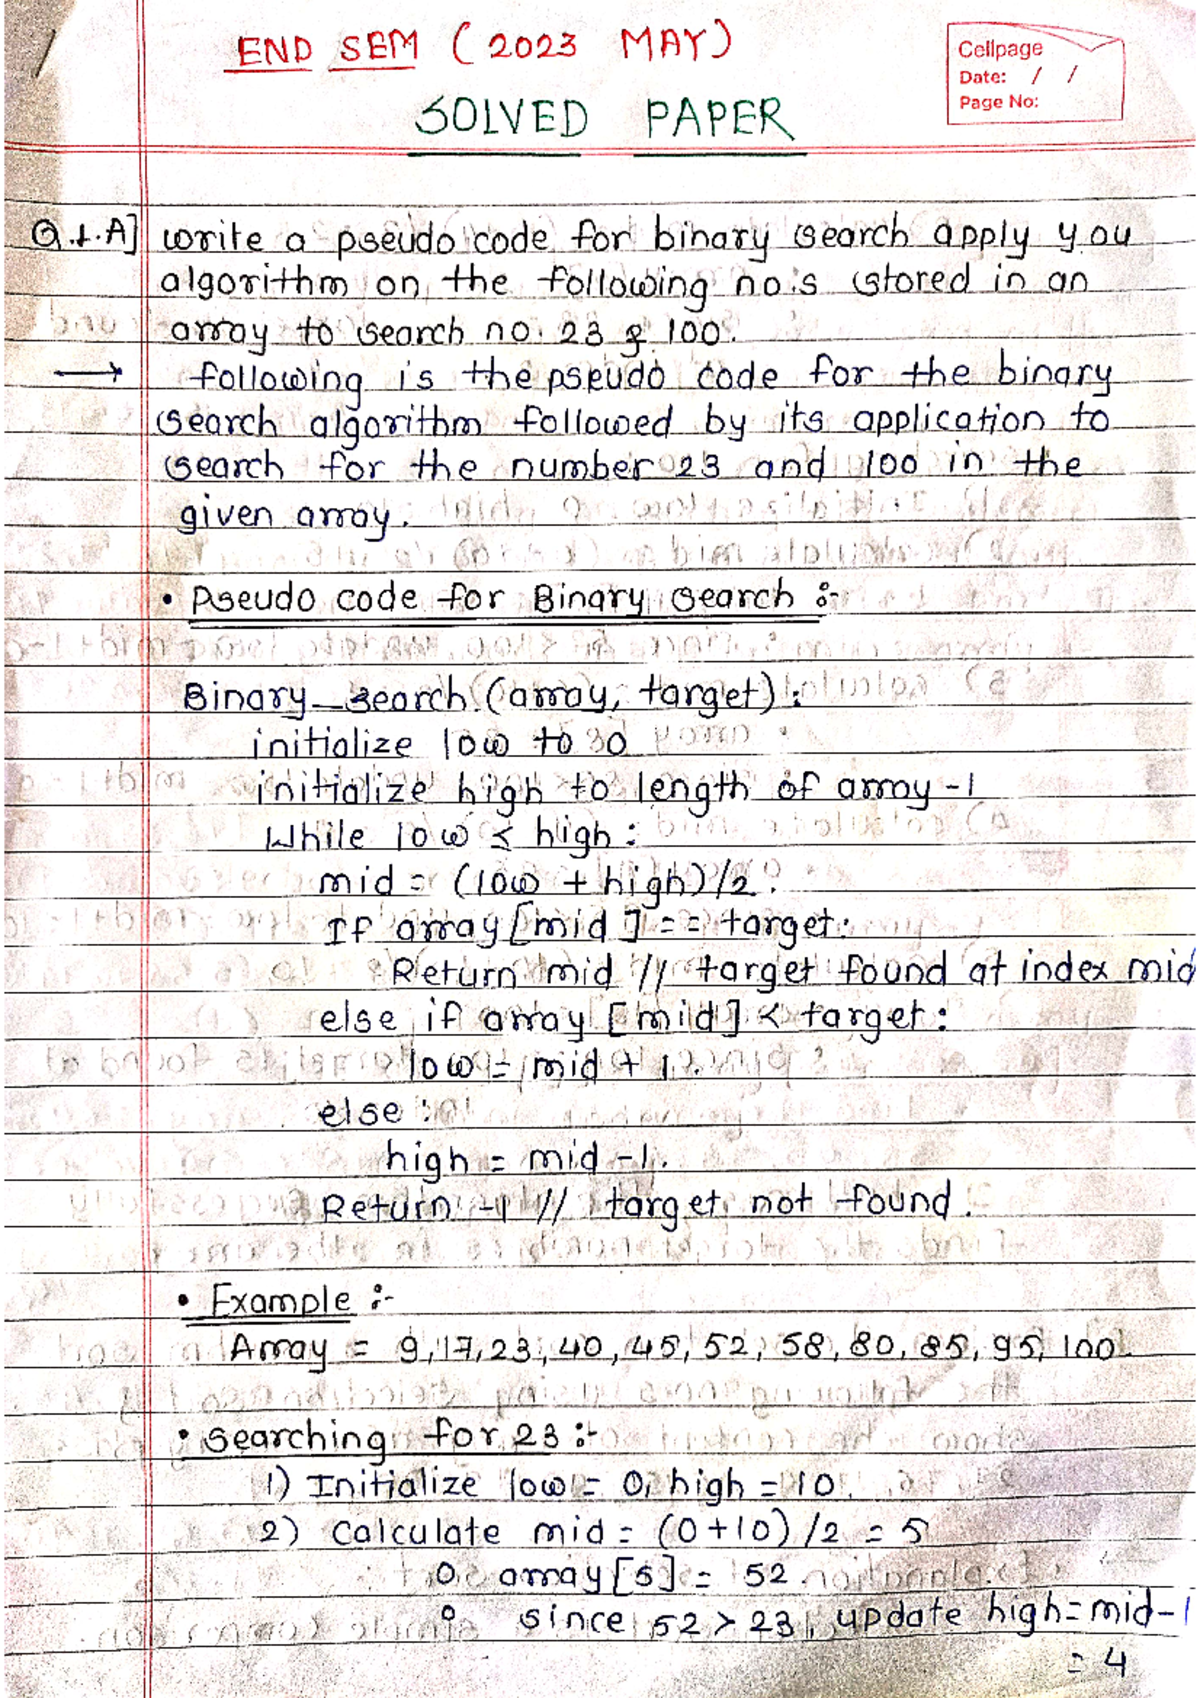 END SEM ( 2023 MAY)
SOLVED PAPER
Cellpage
Date: / /
Page No:
Q.1.A] write a pseudo code for binary search apply you
algorithm on the following no.s stored in an
array to search no. 23 & 100.
→ following is the pseudo code for the binary
search algorithm followed by its application to
search for the number 23 and 100 in the
given array.
• Pseudo code for Binary search :-
Binary_search (array, target) :
initialize low to 0
initialize high to length of array -1
While low ≤ high :
mid = (low + high)/2.
If array [mid] == target:
Return mid // target found at index mid
else if array [mid] < target :
low = mid + 1.
else :
high = mid -1.
Return -1 // target not found.
• Example :-
Array = 9,17,23,40,45,52,58,80,85,95,100.
• searching for 23 :-
1) Initialize low = 0, high = 10.
2) calculate mid = (0+10) /2 = 5
o array [5] = 52
o since 52 > 23, update high = mid-1
= 4